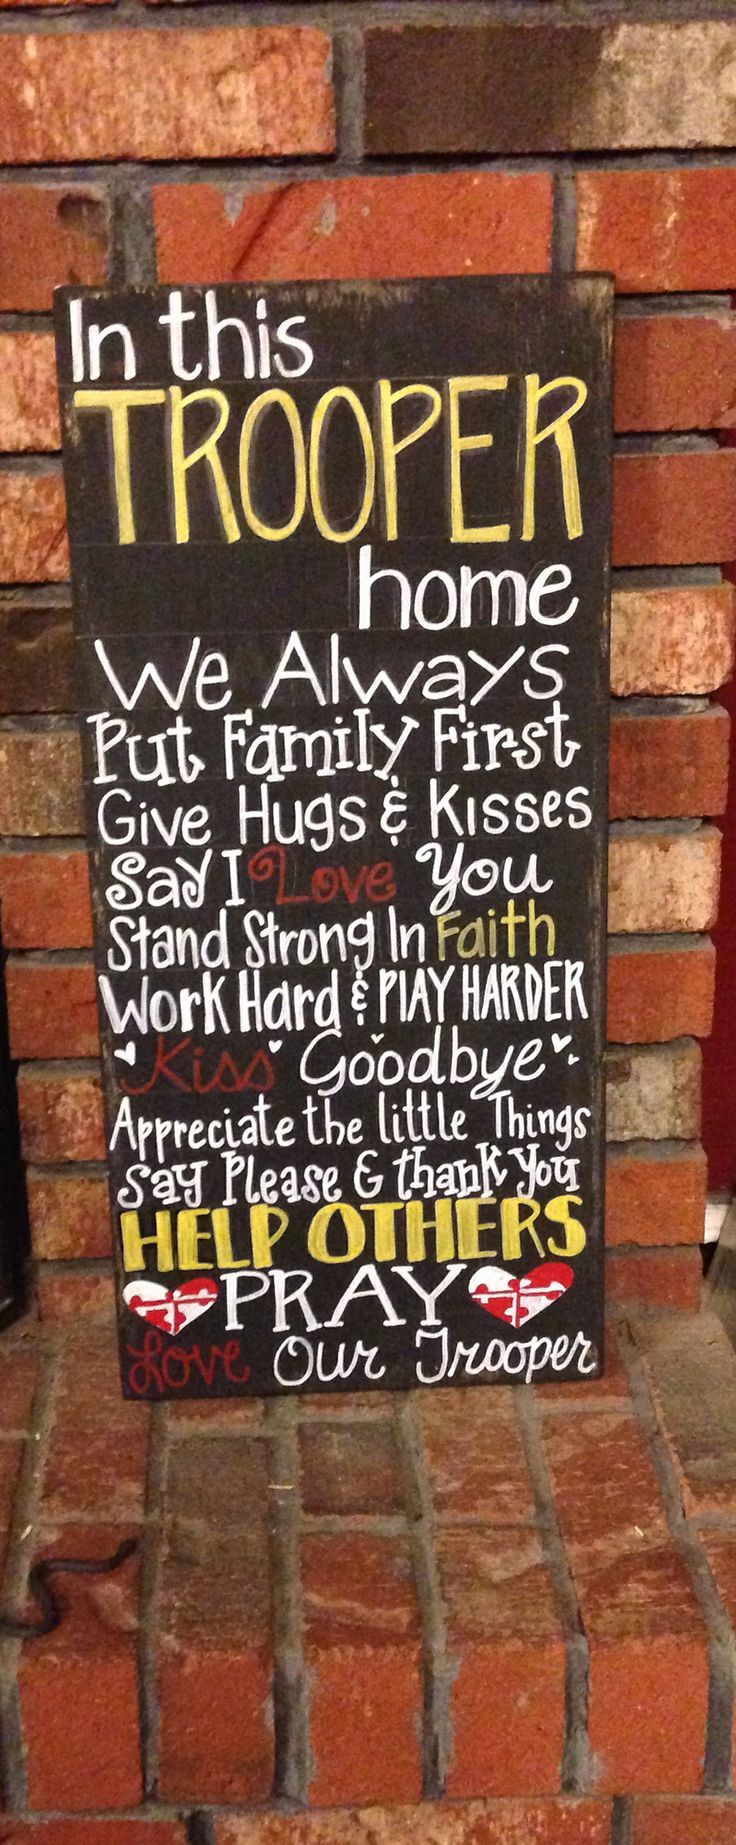 In this
TROOPER
home
We Always
Put Family First
Give Hugs & Kisses
Say I Love You
Stand Strong In Faith
Work Hard & PLAY HARDER
Kiss Goodbye
Appreciate the little Things
Say Please & thank you
HELP OTHERS
PRAY
Love Our Trooper